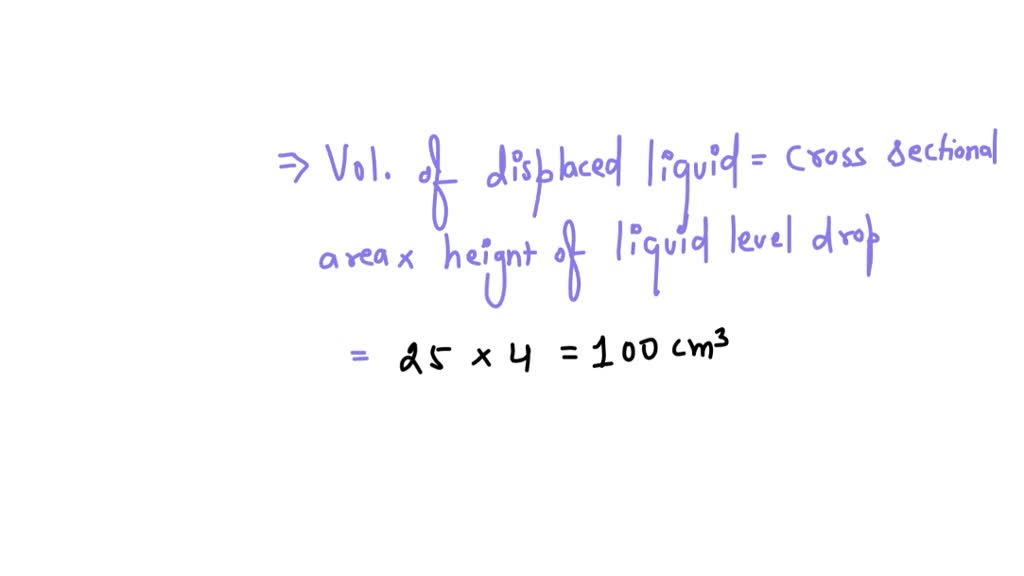 ⇒ Vol. of displaced liquid = cross sectional
area x heignt of liquid level drop
= 25 x 4 = 100 cm³